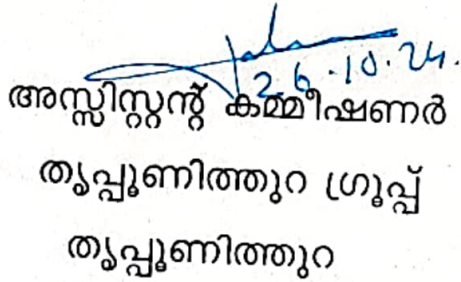 26.10.24.
അസ്സിസ്റ്റന്റ് കമ്മീഷണർ
തൃപ്പൂണിത്തുറ ഗ്രൂപ്പ്
തൃപ്പൂണിത്തുറ